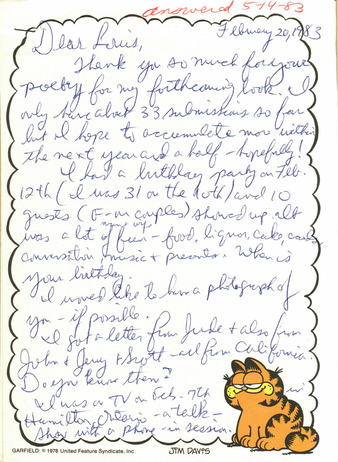 answered 5-14-83
February 20, 1983
Dear Louis,
Thank you so much for your
poetry for my forthcoming book. I
only have about 33 submissions so far
but I hope to accumulate more within
the next year and a half - hopefully!
I had a birthday party on Feb.
12th (I was 31 on the 10th) and 10
guests ( couples) showed up. It
was a lot of fun - food, liquor, cake, cards,
conversation, music + presents. When is
your birthday.
I would like to have a photograph of
you - if possible.
I got a letter from Jude + also from
John + Jerry + Scott - all from California.
Do you know them?
I was on TV on Feb. 7th in
Hamilton, Ontario - a talk-
show with a phone-in session.
GARFIELD: © 1978 United Feature Syndicate, Inc.
JIM DAVIS